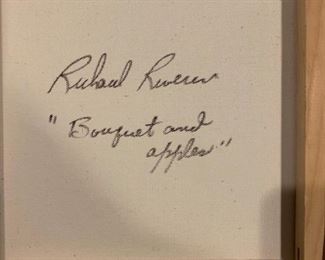 Richard
"Bouquet and
apples"